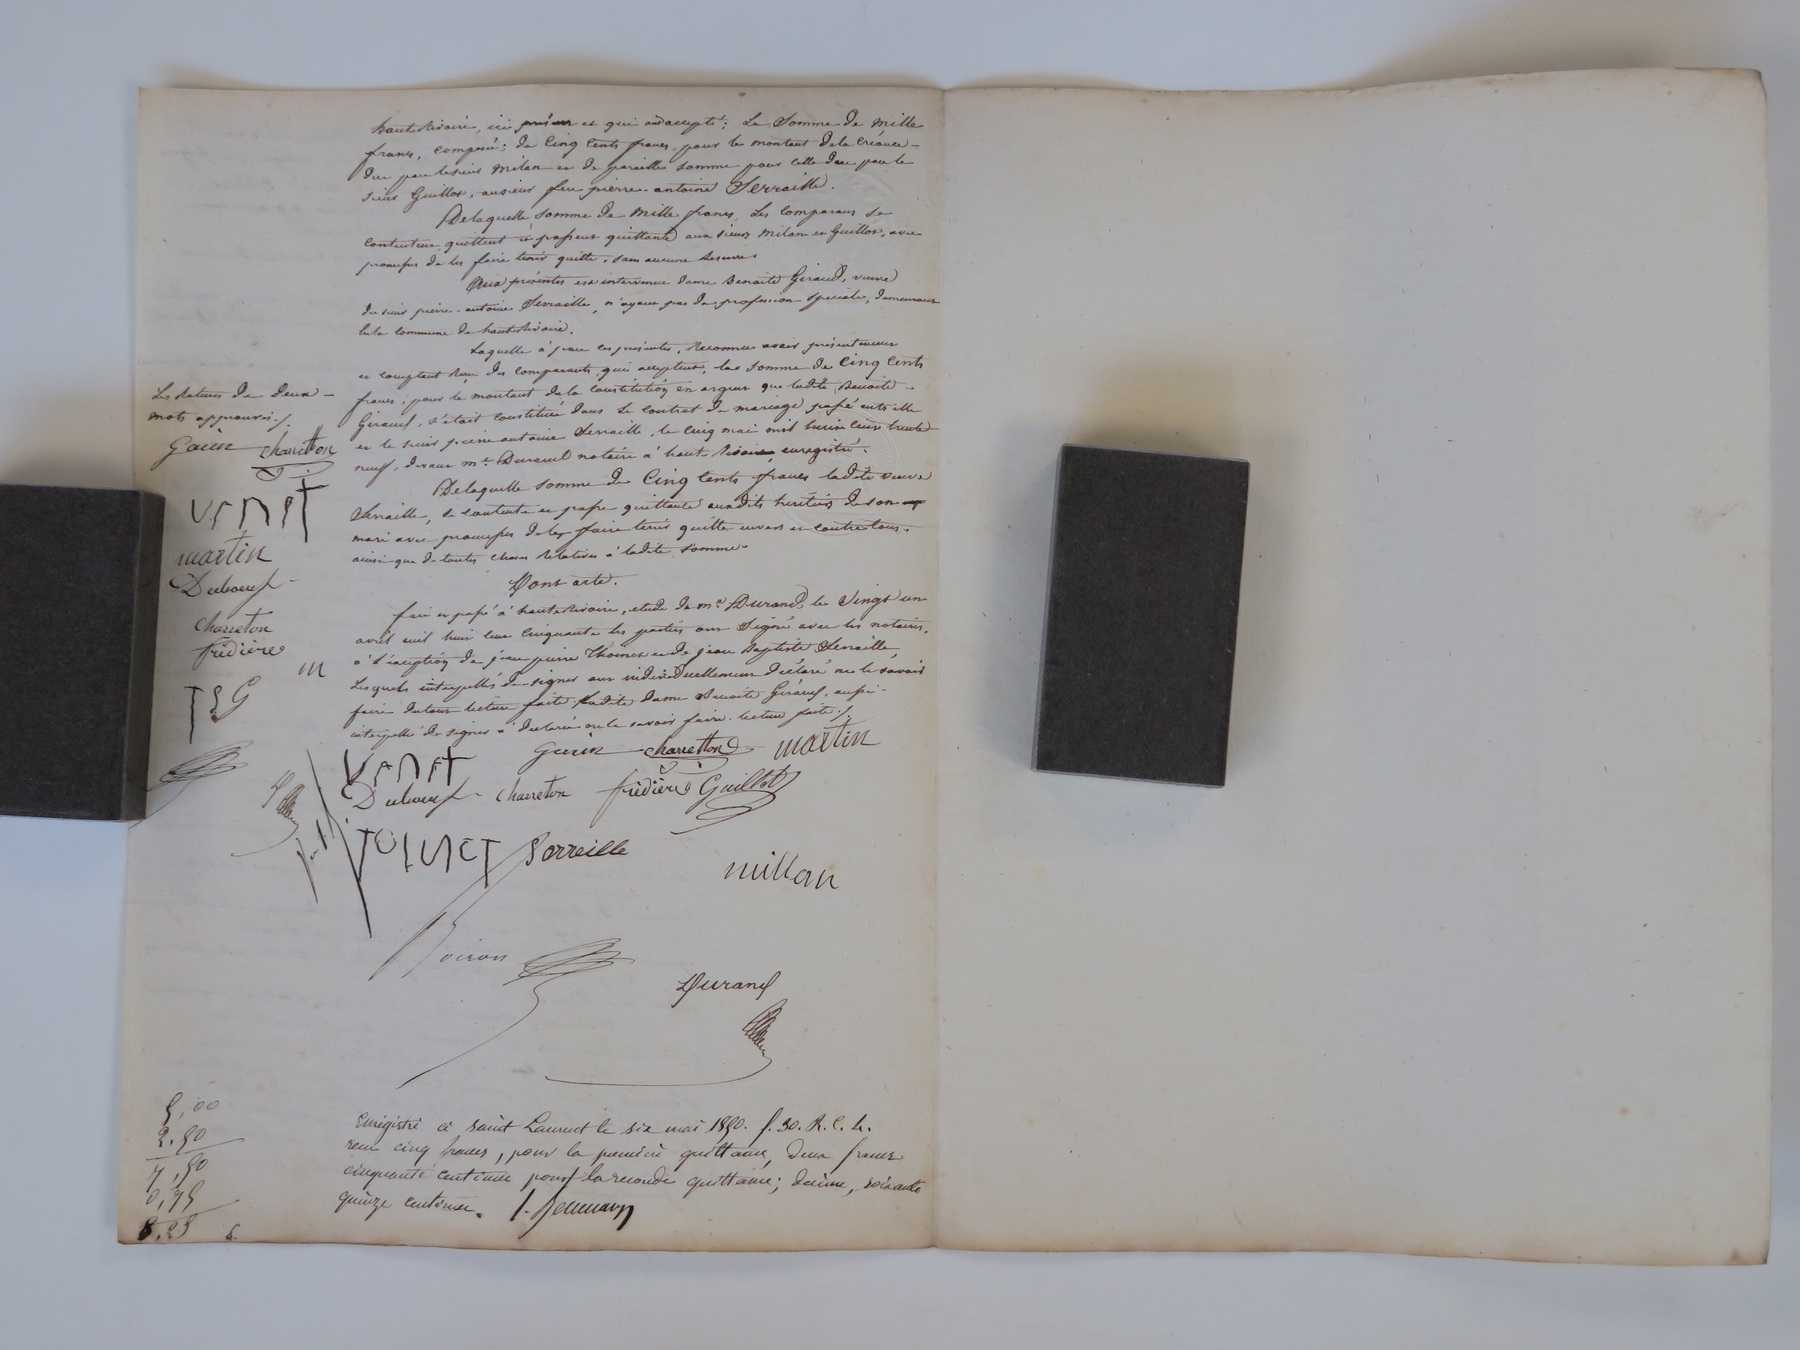 hauterivoire, ici présens et qui ont accepté; La Somme de Mille
francs, composée; de Cinq Cents francs, pour le montant de la Créance
due par le sieur Milan et de pareille somme pour celle due par le
sieur Guillot, au sieur feu pierre-antoine Serraille.
De laquelle somme de Mille francs, Les Comparans se
contentent, quittent et passent quittance aux sieurs Milan et Guillot, avec
promesse de les faire tenir quitte, sans aucune réserve.
Aux présentes est intervenue dame Benoite Giraud, veuve
du sieur pierre-antoine Serraille, n'ayant pas de profession spéciale, demeurant
en la commune de hauterivoire.
Laquelle à par ces présentes, Reconnu avoir présentement
et comptant reçu des comparants, qui acceptent, la somme de Cinq Cents
francs, pour le montant de la Constitution en argent que ladite Benoite
Giraud, s'était constituée dans le contrat de mariage passé entr'elle
et le sieur pierre antoine Serraille, le cinq mai mil huit cent trente
neuf, devant me. Durand notaire à haut-rivoire, enregistré.
De laquelle somme de Cinq Cents francs ladite veuve
Serraille, se contente et passe quittance auxdits héritiers de son
mari avec promesse de les faire tenir quitte envers et contre tous.
ainsi que de toutes choses relatives à ladite somme.
Dont acte.
fait et passé à hauterivoire, étude de me. Durand, le Vingt un
avril mil huit cent cinquante les parties ont signé avec les notaires,
à l'exception de jean pierre Thoinet et de jean Baptiste Serraille,
Lesquels interpellés de signer ont individuellement déclaré ne le savoir
faire de tous lecture faite. Ladite dame Benoite Giraud, aussi
interpellé de signer a déclaré ne le savoir faire. lecture faite./.
Les ratures de deux
mots approuvés/.
Guérin charretton
martin
Duboeuf
charreton
frédière
m
T S G
Guérin charretton martin
Duboeuf charreton frédière Guillot
Serreille
millan
Voiron
Durand
Enregistré à saint Laurent le six mai 1850. f. 30. R. C. 4.
reçu cinq francs, pour la première quittance, deux francs
cinquante centimes pour la seconde quittance; décime, soixante
quinze centimes.
5,00
2,50
7,50
0,75
8,25